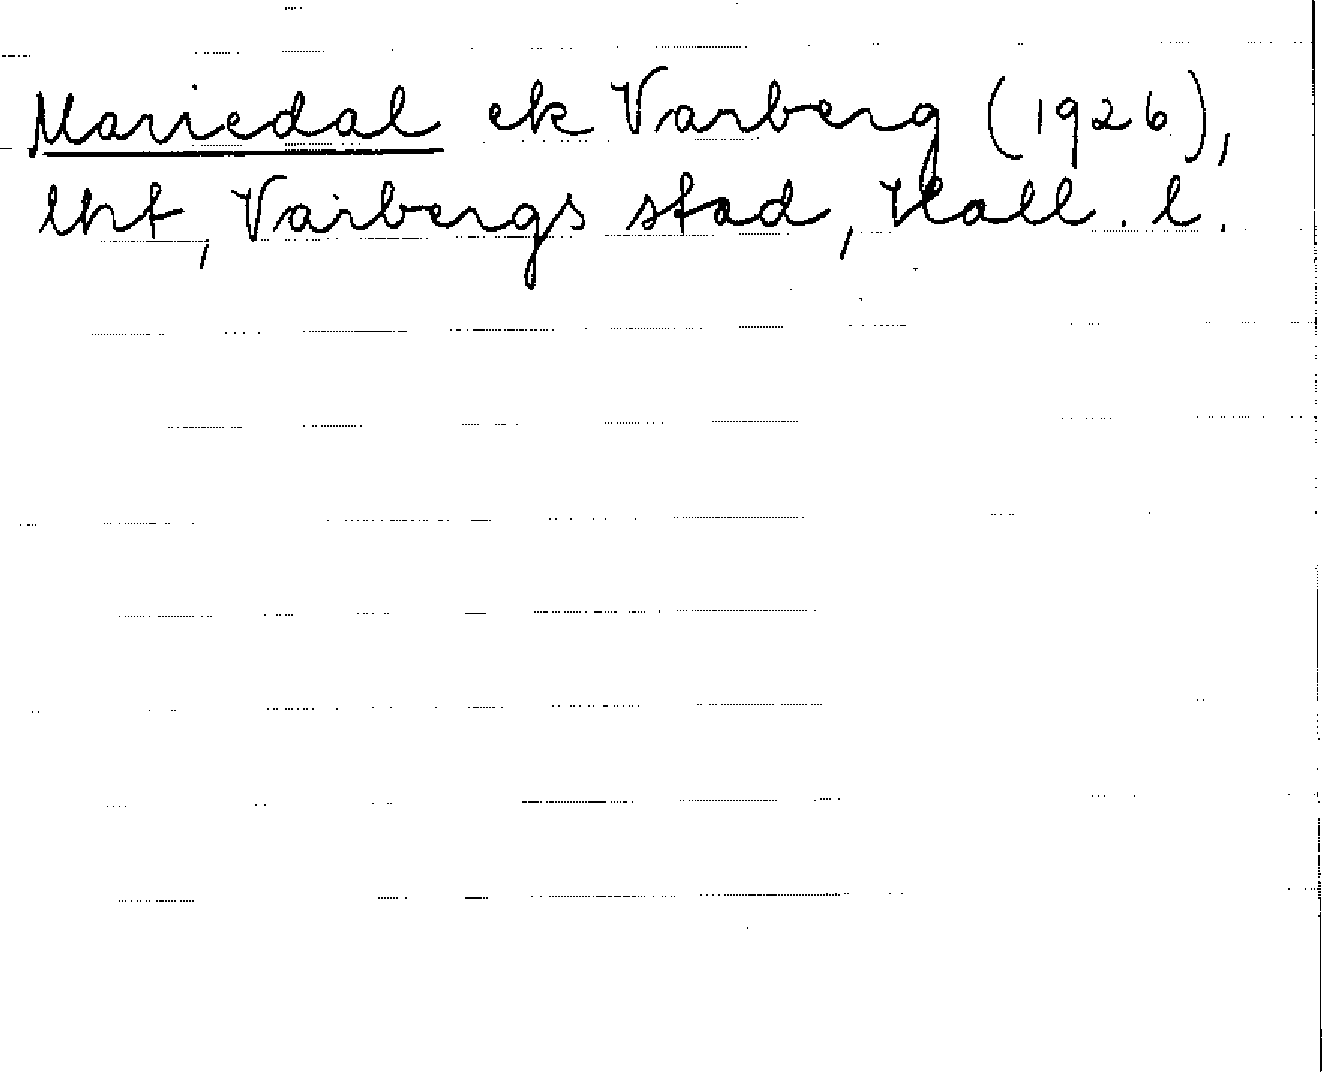 Mariedal ek Varberg (1926),
lht, Varbergs stad, Hall. l.